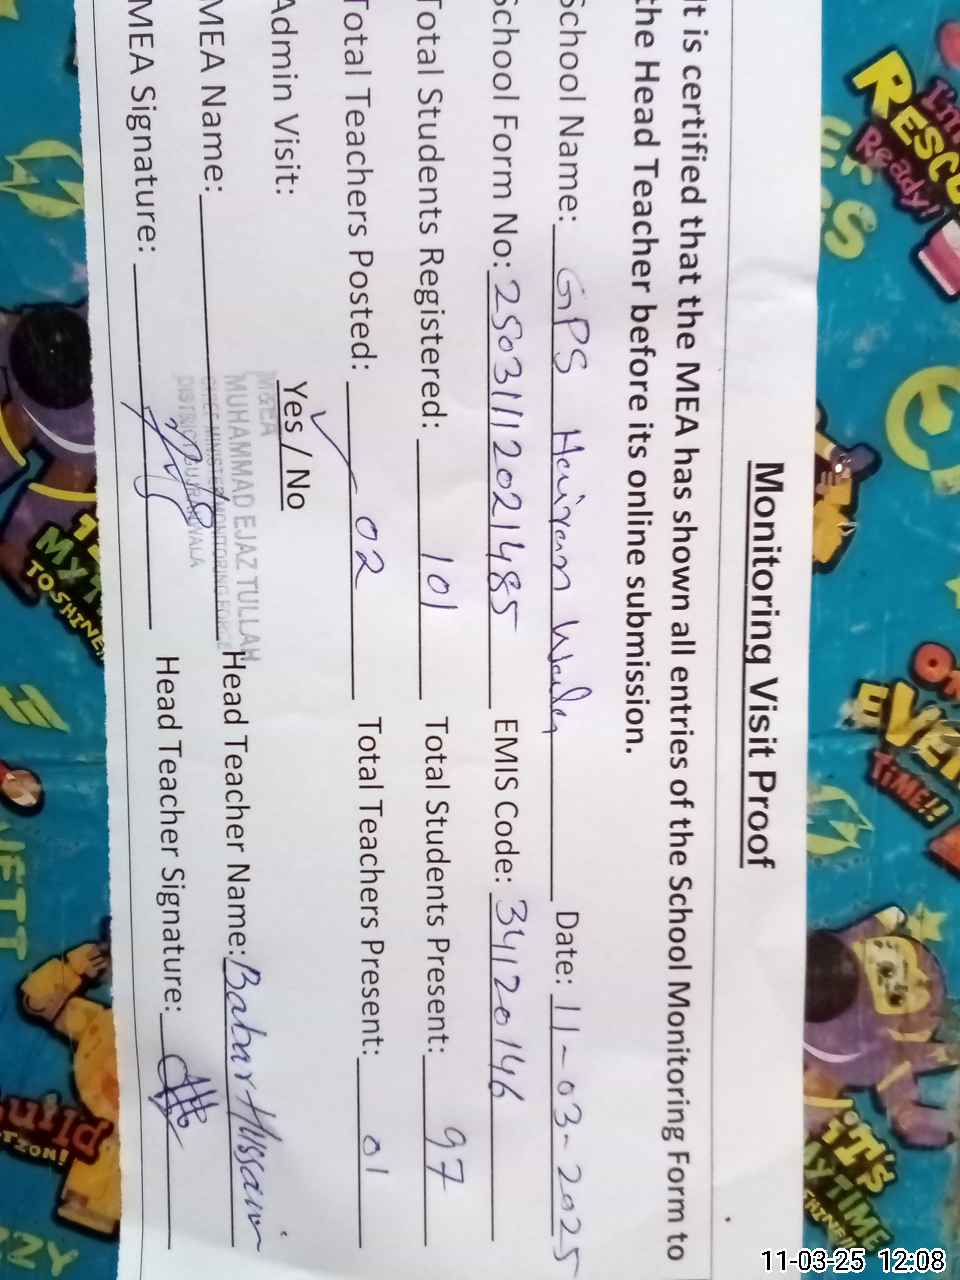 Monitoring Visit Proof
It is certified that the MEA has shown all entries of the School Monitoring Form to
the Head Teacher before its online submission.
School Name: GPS Date: 11-03-2025
School Form No: 25031112021485 EMIS Code: 34120146
Total Students Registered: 101 Total Students Present: 97
Total Teachers Posted: 02 Total Teachers Present: 01
Admin Visit: Yes / No
M&EA
MUHAMMAD EJAZ TULLAH
CHIEF MINISTER MONITORING FORCE
DISTRICT GUJRANWALA
MEA Name: Head Teacher Name: Babar Hussain
MEA Signature: Head Teacher Signature:
I'm
RESCU
Ready!
TO SHINE
EVE
TIME!!
IT'S
MY TIME
11-03-25 12:08